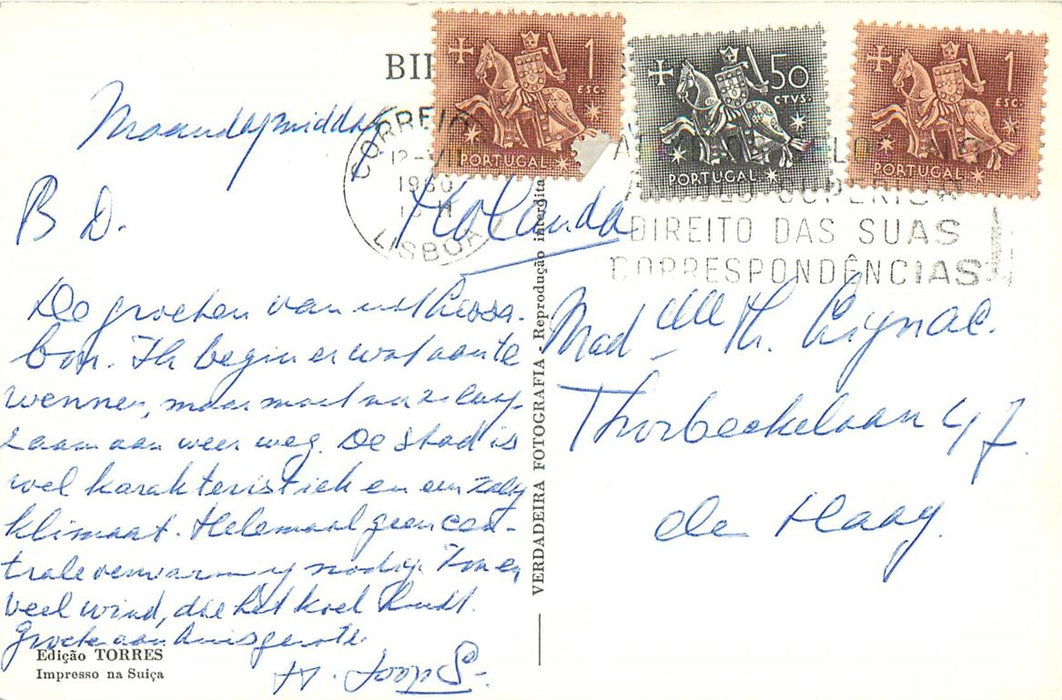 BI
1
ESC.
PORTUGAL
50
CTVS.
PORTUGAL
1
ESC.
PORTUGAL
CORREIO
12-VII
1960
LISBOA
DIREITO DAS SUAS
CORRESPONDÊNCIAS
Maandagmiddag
B D.
De groeten van uit Lissa-
bon. Ik begin er wat aan te
wennen, maar moet nu zo lang-
zaam aan weer weg. De stad is
wel karakteristiek en een zalig
klimaat. Helemaal geen cen-
trale verwarming nodig. Zon en
veel wind, die het koel houdt.
Groeten aan huisgenoten
A.
Edição TORRES
Impresso na Suiça
VERDADEIRA FOTOGRAFIA - Reprodução interdita
Holanda
Mad elle Th. Cignac.
Thorbeckelaan 47
den Haag.